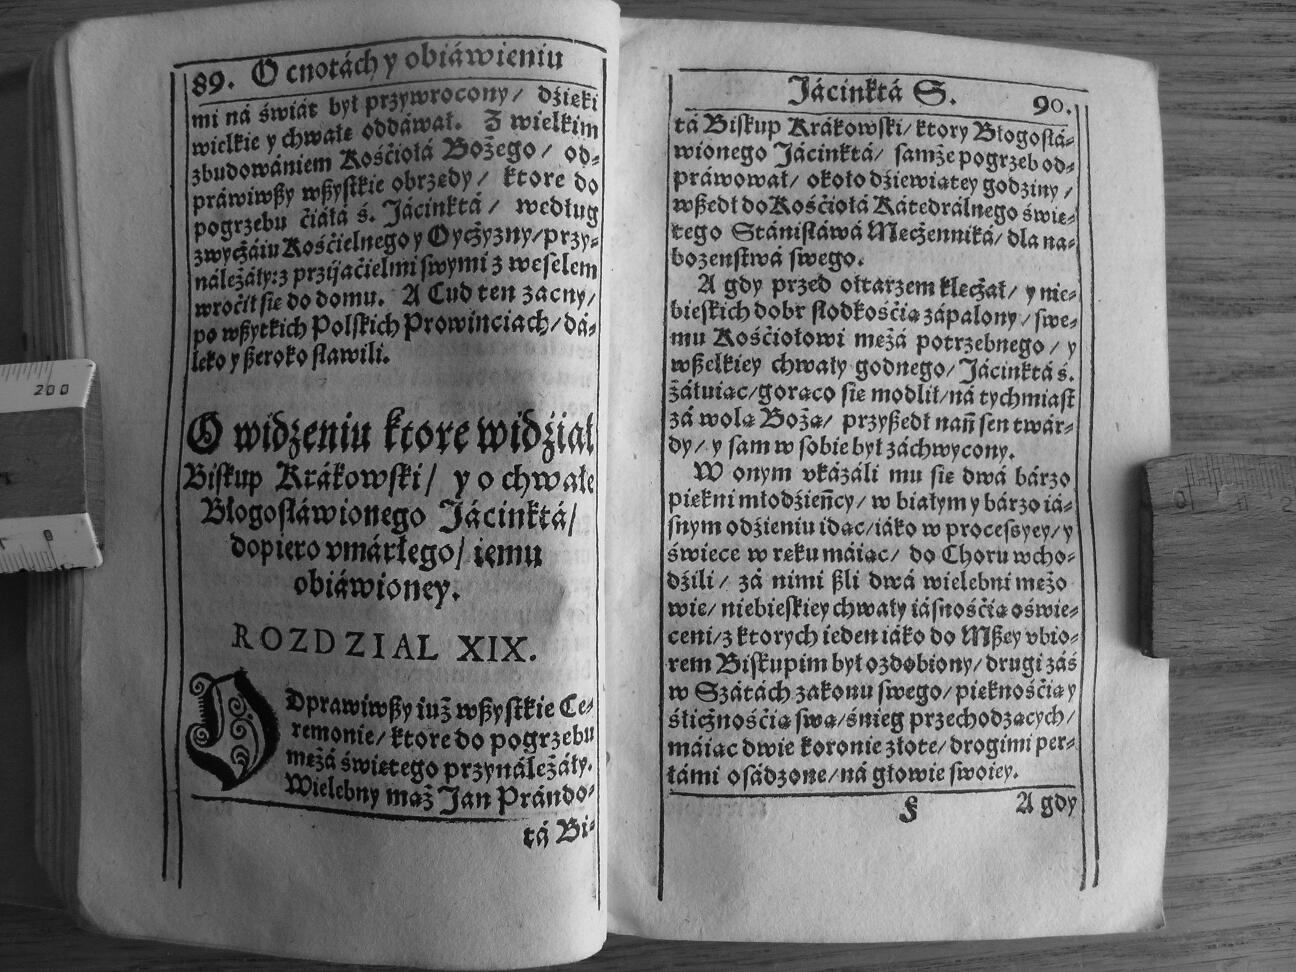 89. O cnotách y obiáwieniu
mi ná świát był przywrocony/ dźięki
wielkie y chwałę oddáwał. Z wielkim
zbudowániem Kośćiołá Bożego/ od⸗
práwiwßy wßystkie obrzędy/ ktore do
pogrzebu ćiáłá ś. Jácinktá/ według
zwyczáiu Kośćielnego y Oyczyzny/ przy⸗
należáły: z przyiaćielmi swymi z weselem
wroćił się do domu. A Cud ten zacny/
po wßytkich Polskich Prowinciach/ dá⸗
leko y ßeroko sławili.
O widzeniu ktore widźiał
Biskup Krákowski/ y o chwale
Błogosłáwionego Jácinktá/
dopiero vmárłego/ iemu
obiáwioney.
ROZDZIAL XIX.
ODprawiwßy iuż wßystkie Ce⸗
remonie/ ktore do pogrzebu
mężá świętego przynáleżáły.
Wielebny mąż Jan Prándo⸗
tá Bi⸗
Jácinktá S. 90.
tá Biskup Krákowski/ ktory Błogosłá⸗
wionego Jácinktá/ samże pogrzeb od⸗
práwował/ około dźiewiątey godziny/
wßedł do Kośćiołá Kátedrálnego świę⸗
tego Stánisłáwá Męczenniká/ dla na⸗
bozenstwá swego.
A gdy przed ołtarzem klęczał/ y nie⸗
bieskich dobr słodkośćią zápalony/ swe⸗
mu Kośćiołowi mężá potrzebnego/ y
wßelkiey chwały godnego/ Jácinktá ś.
żáłuiąc/ gorąco się modlił/ ná tychmiast
zá wolą Bożą/ przyßedł nań sen twár⸗
dy/ y sam w sobie był záchwycony.
W onym vkázáli mu się dwá bárzo
piękni młodźieńcy/ w białym y bárzo iá⸗
snym odźieniu idąc/ iáko w processyey/ y
świece w ręku máiąc/ do Choru wcho⸗
dźili/ zá nimi ßli dwá wielebni mężo
wie/ niebieskiey chwały iásnośćią oświe⸗
ceni/ z ktorych ieden iáko do Mßey vbio⸗
rem Biskupim był ozdobiony/ drugi záś
w Szátách zakonu swego/ pięknośćią y
ślicznośćią swą/ śnieg przechodzących/
máiąc dwie koronie złote/ drogimi per⸗
łámi osádzone/ ná głowie swoiey.
A gdy
200
0